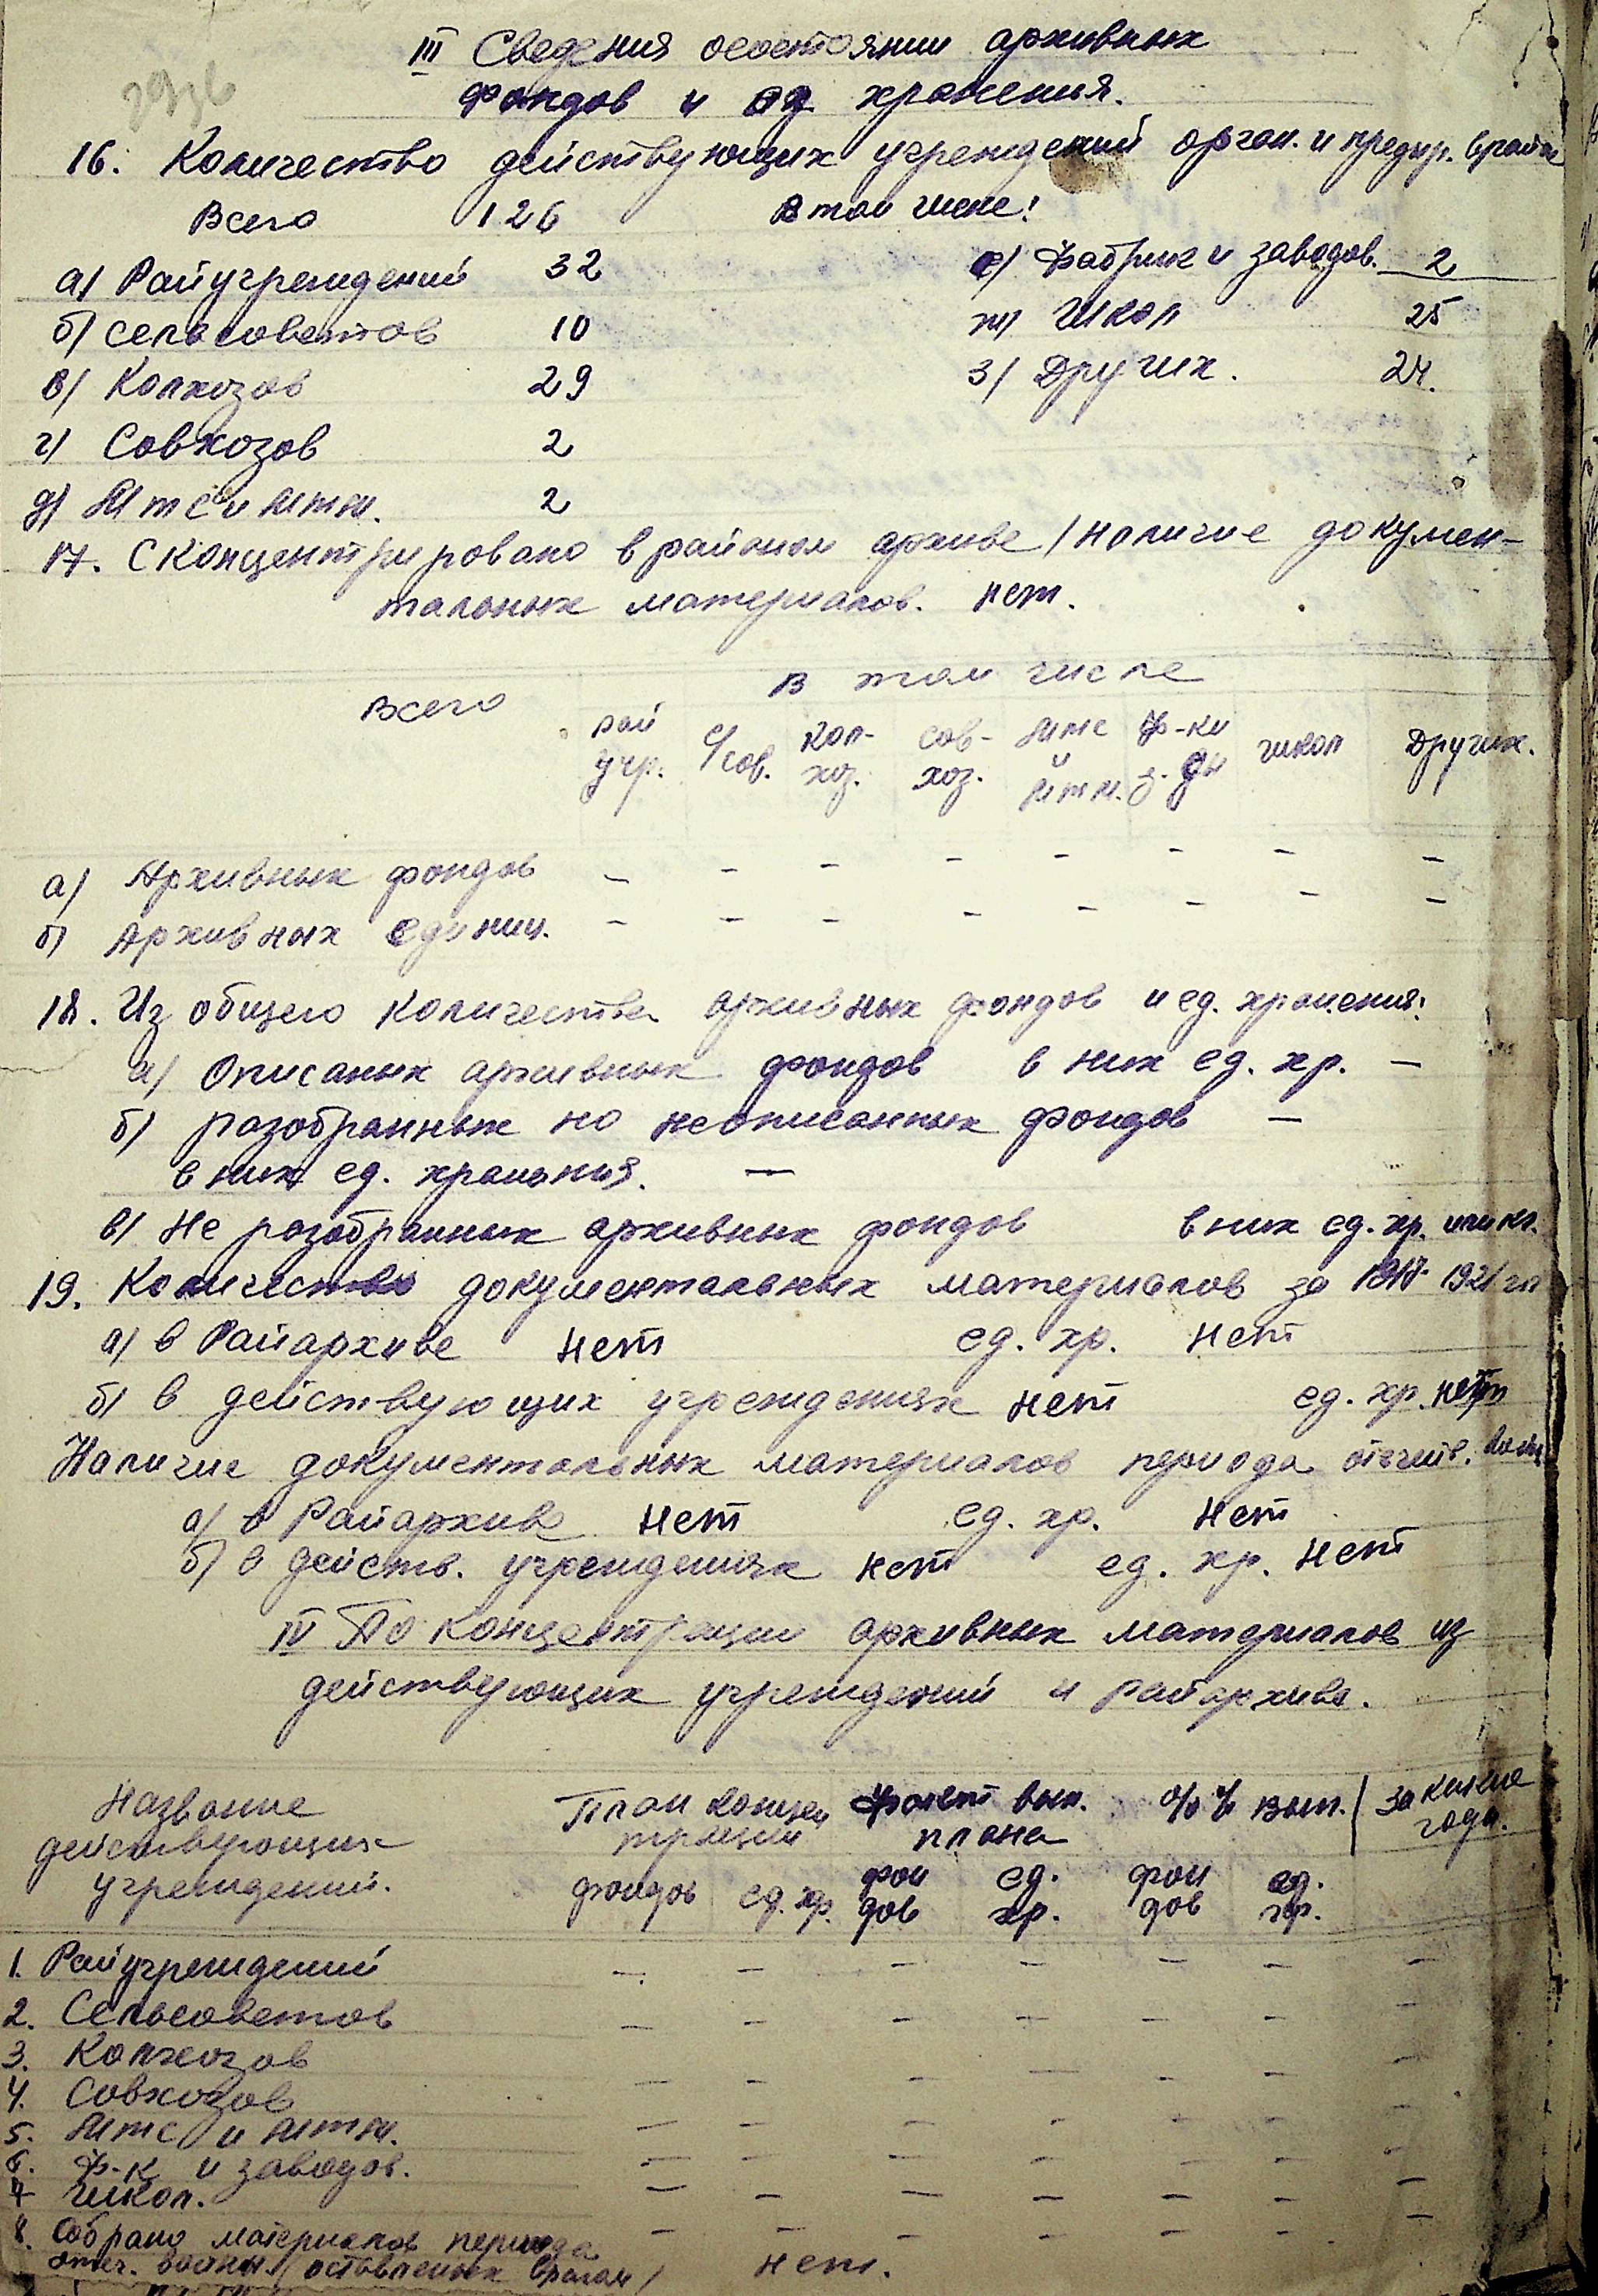 III Сведения о состоянии архивных
фондов и ед хранения.
16. Количество действующих учреждений орган. и предпр. в районе
Всего 126 В том числе:
а/ Райучреждений 32 е/ Фабрик и заводов. 2
б/ сельсоветов 10 ж/ Школ 25
в/ Колхозов 29 з/ Других. 24.
г/ Совхозов 2
д/ Мтс и мтм. 2
17. Сконцентрировано в районом архиве /наличие докумен-
тальных материалов. нет.
Всего В том числе
рай учр. с/сов. кол-хоз. сов-хоз. мтс и мтм. ф-ки з-ды школ Других.
а/ Архивных фондов – – – – – – – –
б/ Архивных единиц. – – – – – – – –
18. Из общего количества архивных фондов и ед. хранения:
а/ Описаных архивных фондов в них ед. хр. —
б/ разобранных но неописанных фондов —
в них ед. хранения. —
в/ Не разобранных архивных фондов в них ед. хр. или кг.
19. Количество документальных материалов за 1917-1921 гг
а/ в Райархиве нет ед. хр. нет
б/ в действующих учреждениях нет ед. хр. нет
Наличие документальных материалов периода отечеств. войны
а/ в Райархиве нет ед. хр. нет
б/ в действ. учреждениях нет ед. хр. нет
IV По Концентрации архивных материалов из
действующих учреждений и райархива.
Название План концен Фактт вып. %% вып. / За какие
действующих трации плана года.
учреждений. фондов ед. хр. фон дов ед. хр. фон дов ед. хр.
1. Райучреждений – – – – – – –
2. Сельсоветов – – – – – – –
3. Колхозов – – – – – – –
4. Совхозов – – – – – – –
5. Мтс и мтм. – – – – – – –
6. Ф-к и заводов. – – – – – – –
7 Школ. – – – – – – –
8. Собрано материалов периода
отеч. войны /оставленых врагом/ нет.